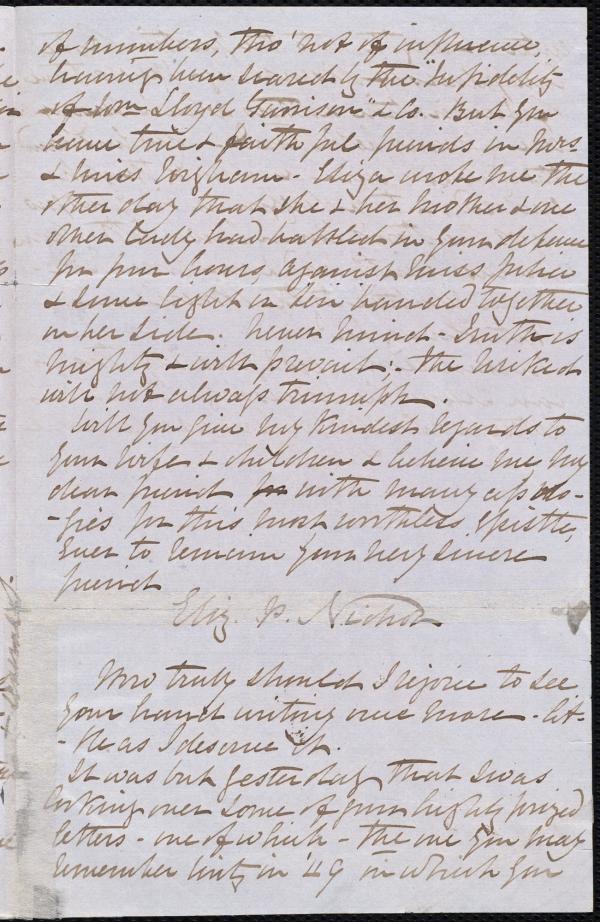 of numbers, tho' not of influence,
having been scared by the "Infidelity
of Wm Lloyd Garrison" & Co. But you
have true & faithful friends in Mrs
& Miss Wigham - Eliza wrote me the
other day that she & her mother & one
other lady had battled in your defence
for four hours, against Miss Julia
& some eight or ten banded together
on her side. Never mind - Truth is
mighty & will prevail; - the wicked
will not always triumph.
Will you give my kindest regards to
your wife & children & believe me my
dear friend with many apolo-
-gies for this most worthless epistle,
Ever to remain your very sincere
friend
Eliz. P. Nichol
How truly should I rejoice to see
your hand writing once more - lit-
-tle as I deserve it.
It was but yesterday that I was
looking over some of your highly prized
letters - one of which - the one you may
remember in '49 in which you